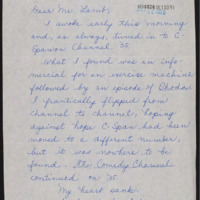 Dear Mr. Lamb,
I awoke early this morning
and, as always, turned in to C-
Span on Channel 35.
What I found was an info-
mercial for an exercise machine
followed by an episode of
I frantically flipped from
channel to channel, hoping
against hope C-Span had been
moved to a different number,
but it was nowhere to be
found. The Comedy Channel
continued on "35.
My heart sank.